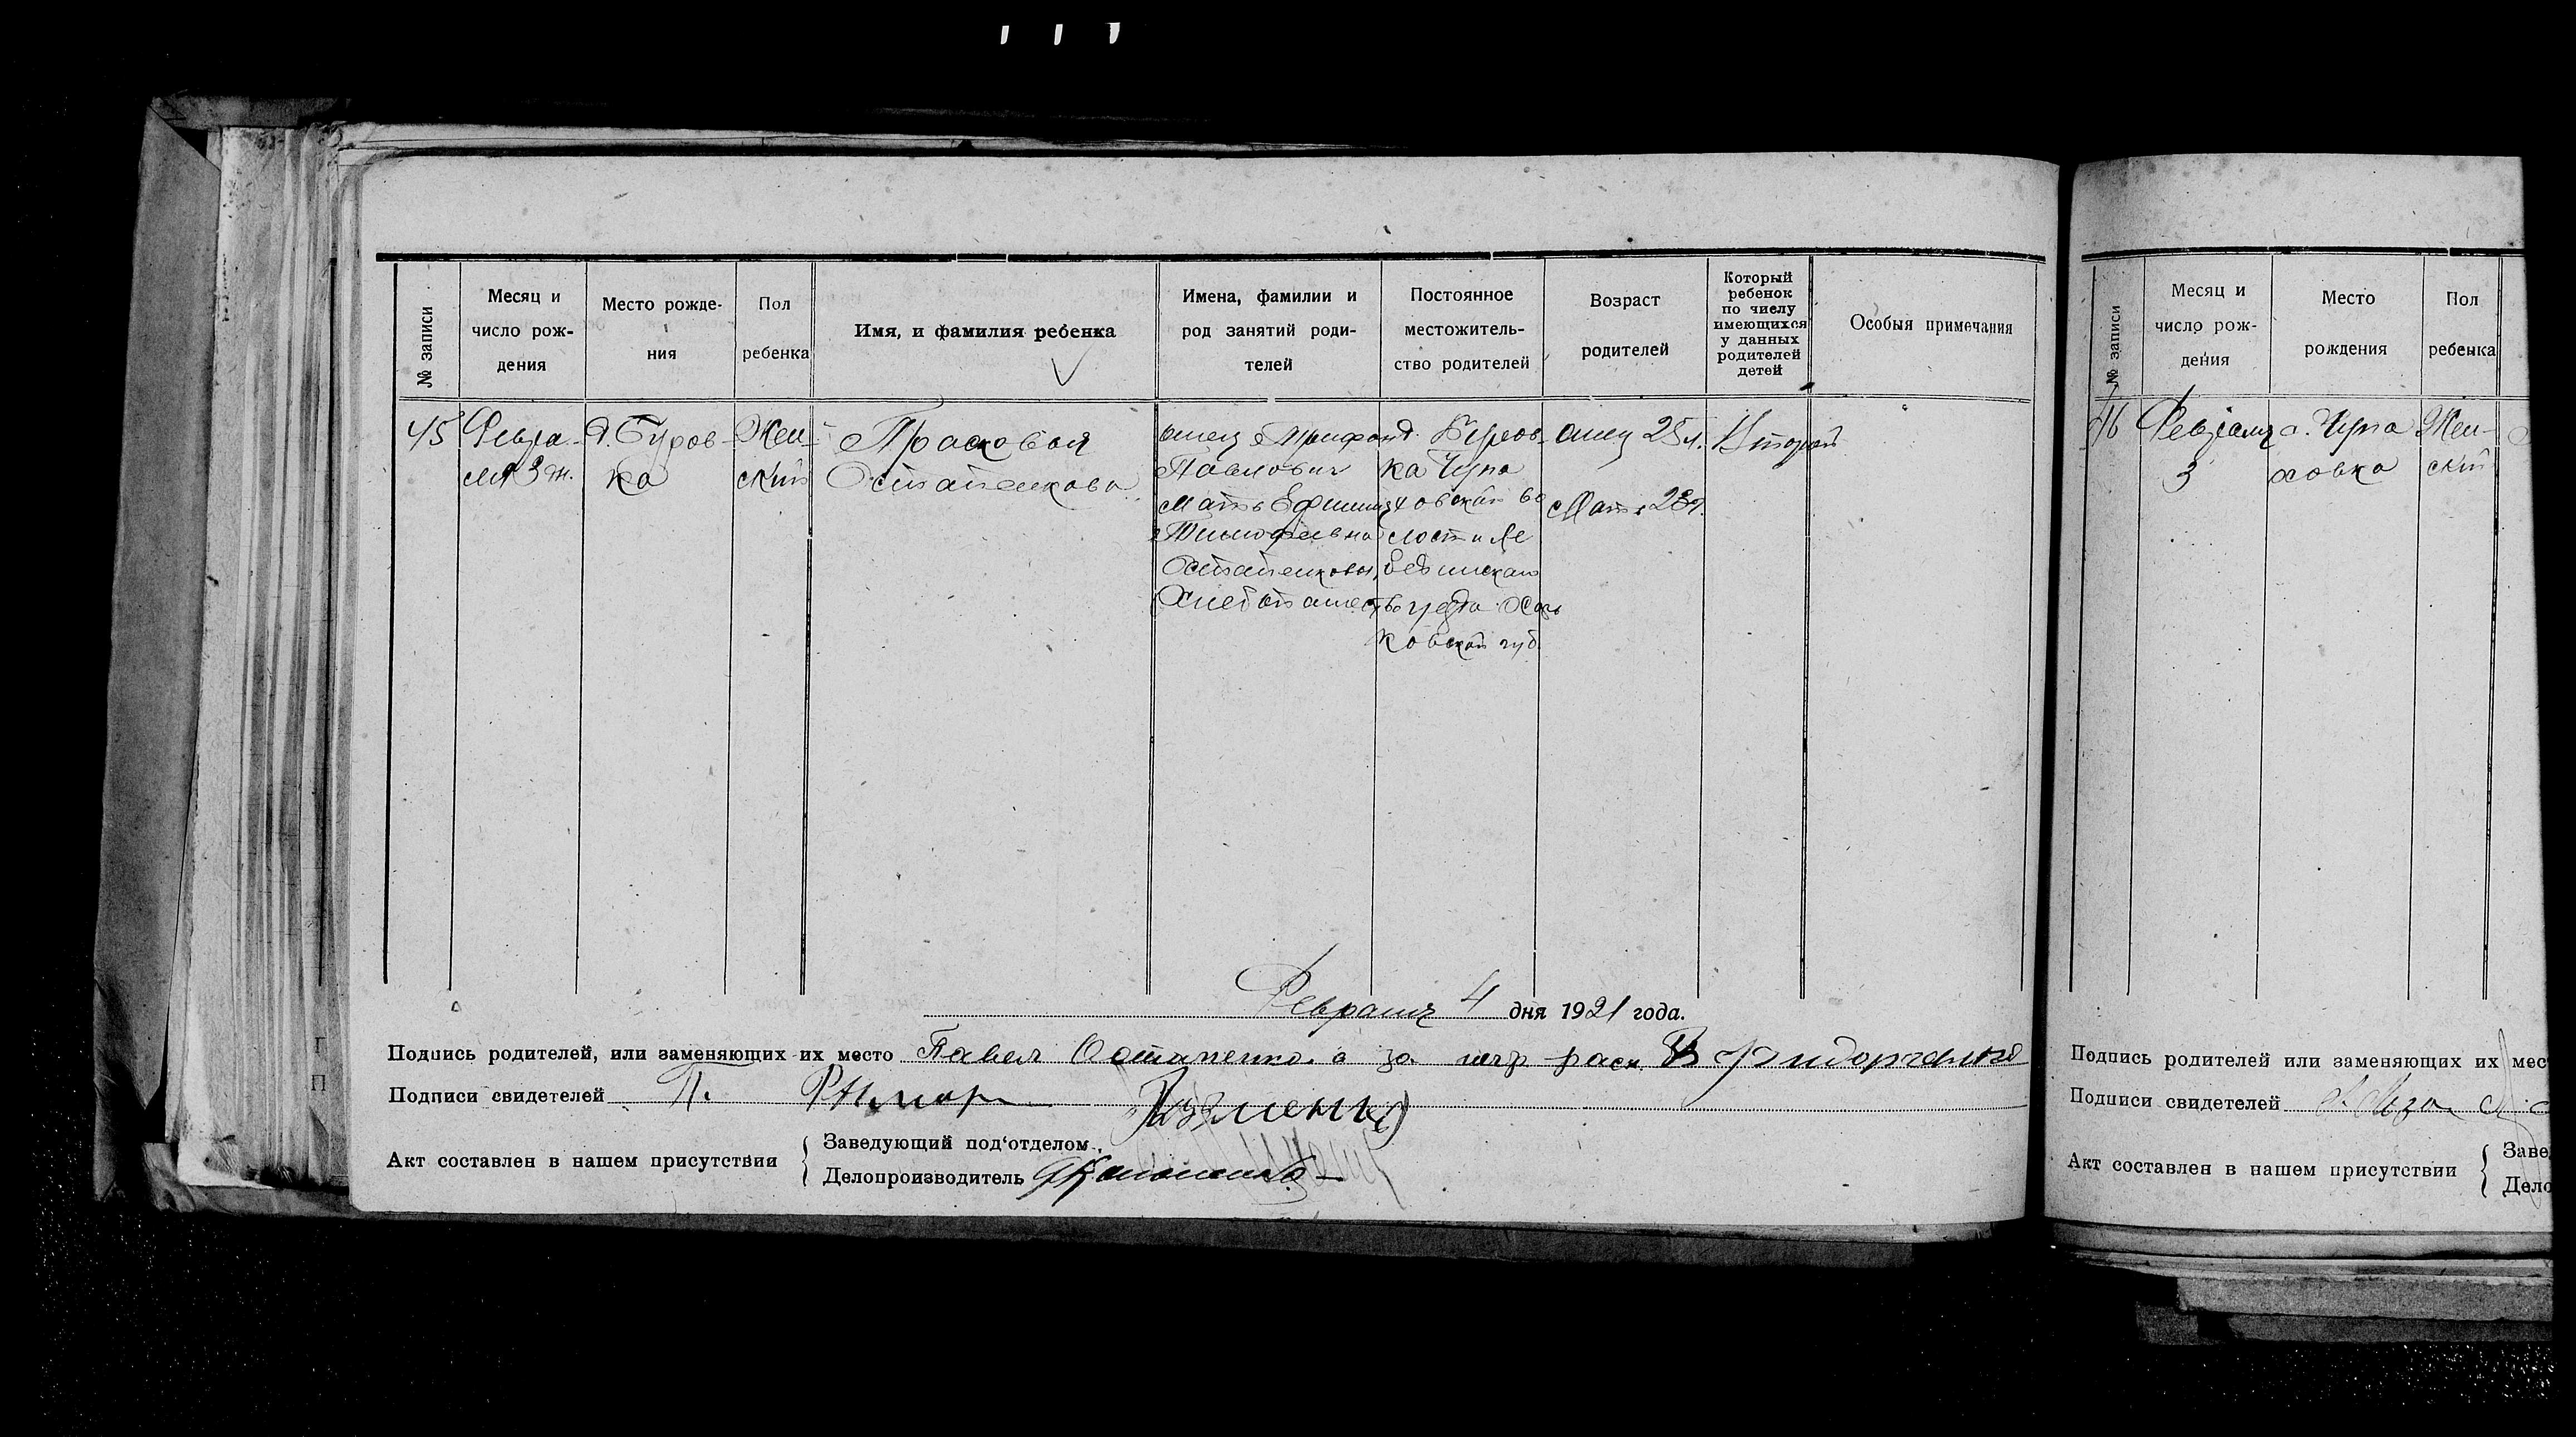 № записи
Месяц и
число рож-
дения
Место рожде-
ния
Пол
ребенка
Имя, и фамилия ребенка
Имена, фамилии и
род занятий роди-
телей
Постоянное
местожитель-
ство родителей
Возраст
родителей
Который
ребенок
по числу
имеющихся
у данных
родителей
детей
Особыя примечания
45
Февра-
ля 3
д. Буров-
ка
Жен-
ский
Прасковья
Остапенкова
отец Трифон
Павлович
Мать
Тимофеевна
Остапенковы,
Хлебопашество
д. Буров-
ка Чупа
ховской во
лости Ле
бединскаго
уезда Харь
ковской губ.
отец 25 л.
Мать 23 л.
Второй
Февраля 4 дня 1921 года.
Подпись родителей, или заменяющих их место Павел Остапенко а за
Подписи свидетелей П.
Акт составлен в нашем присутствии
Заведующий под‘отделом
Делопроизводитель
№ записи
Месяц и
число рож-
дения
Место
рождения
Пол
ребенка
46
Февраля
3
с. Чупа
ховка
Жен-
ский
Подпись родителей или заменяющих их мес
Подписи свидетелей
Акт составлен в нашем присутствии
Заве
Дело